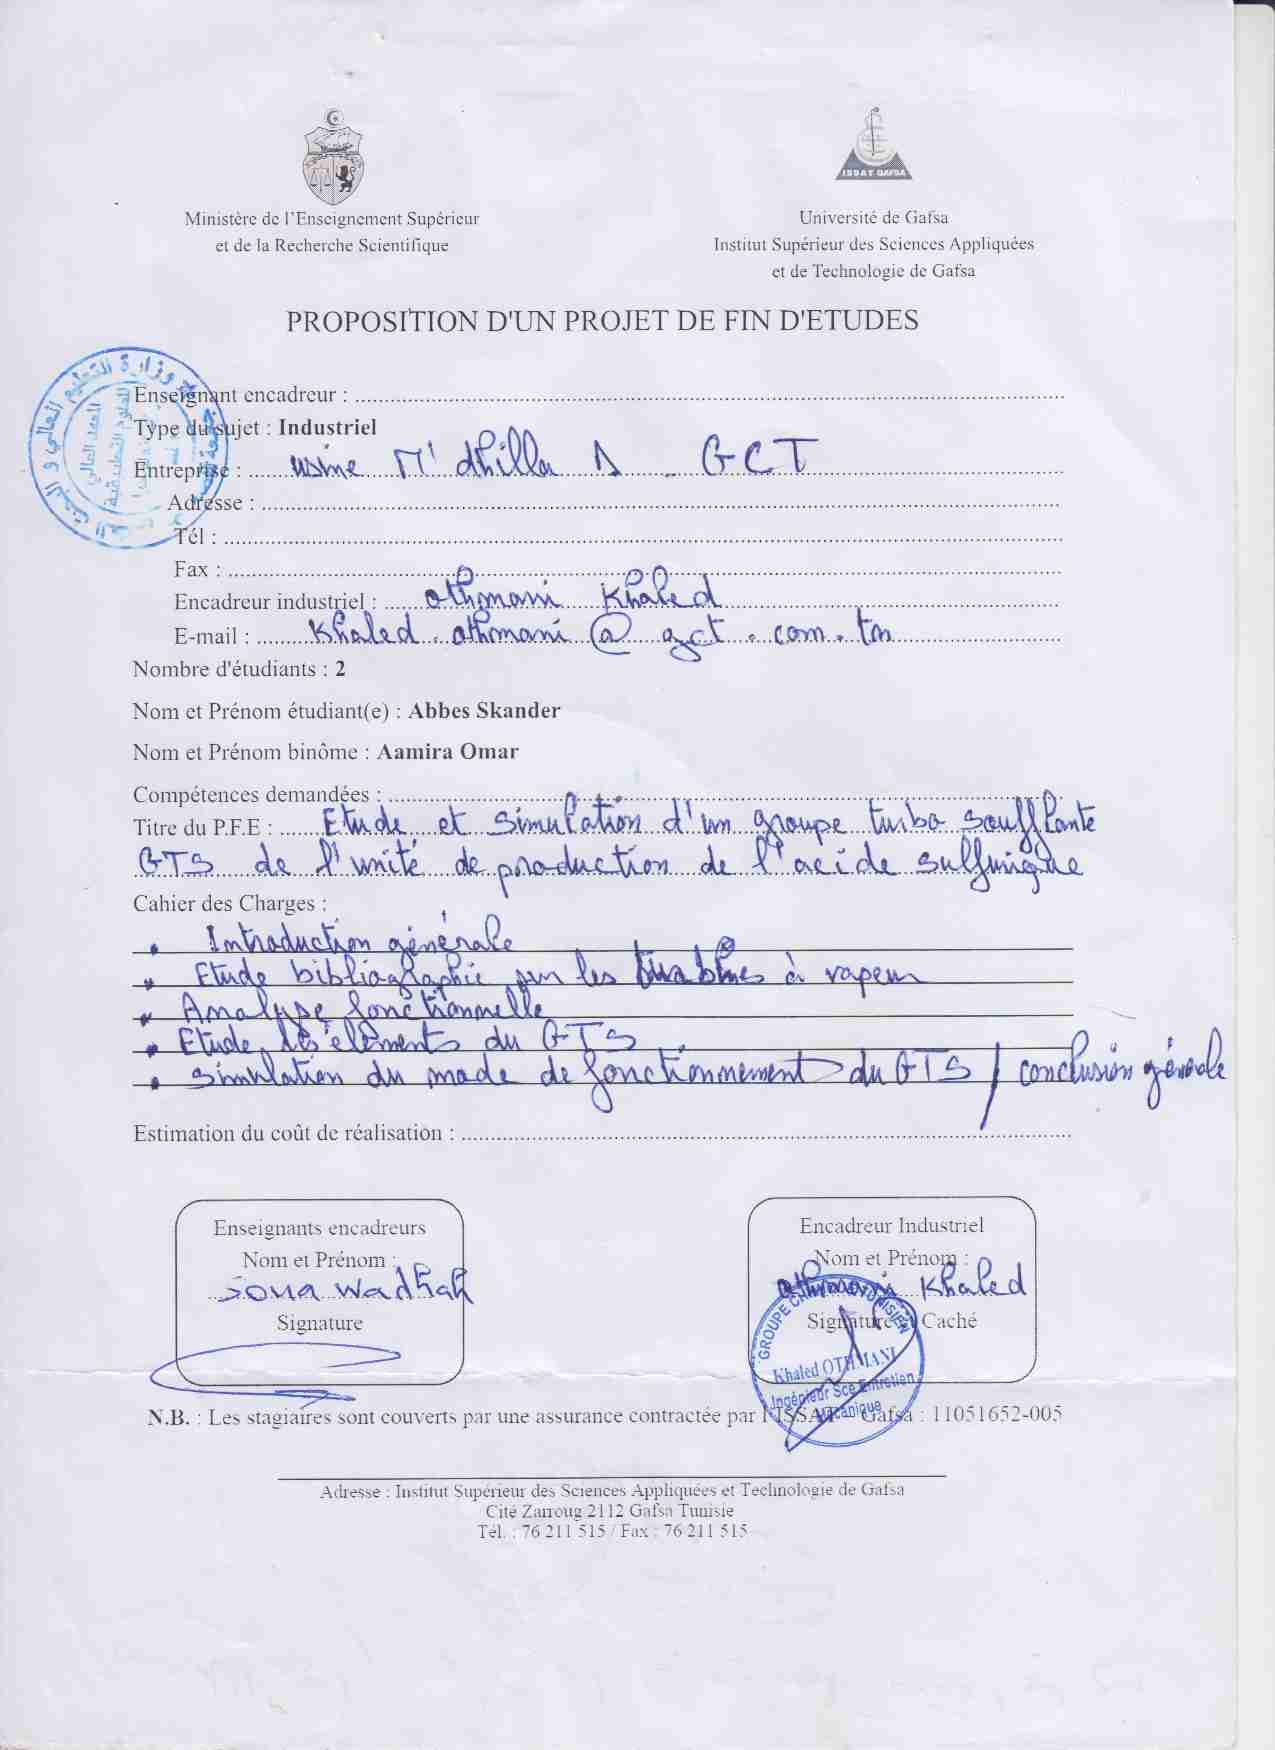 ISSAT GAFSA
Ministère de l'Enseignement Supérieur
et de la Recherche Scientifique
Université de Gafsa
Institut Supérieur des Sciences Appliquées
et de Technologie de Gafsa
PROPOSITION D'UN PROJET DE FIN D'ETUDES
Enseignant encadreur :
Type du sujet : Industriel
Entreprise : usine M'dhilla 1 - GCT
Adresse :
Tél :
Fax :
Encadreur industriel : othmani Khaled
E-mail : Khaled.othmani@gct.com.tn
Nombre d'étudiants : 2
Nom et Prénom étudiant(e) : Abbes Skander
Nom et Prénom binôme : Aamira Omar
Compétences demandées :
Titre du P.F.E : Etude et simulation d'un groupe turbo soufflante
GTS de l'unité de production de l'acide sulfurique
Cahier des Charges :
• Introduction générale
• Etude bibliographie sur les turbines à vapeur
• Analyse fonctionnelle
• Etude des éléments du GTS
• Simulation du mode de fonctionnement du GTS / conclusion générale
Estimation du coût de réalisation :
Enseignants encadreurs
Nom et Prénom :
Wadhah
Signature
Encadreur Industriel
Nom et Prénom :
othmani Khaled
Signature et Caché
GROUPE CHIMIQUE TUNISIEN
Khaled OTHMANI
Ingénieur Sce Entretien
Mécanique
N.B. : Les stagiaires sont couverts par une assurance contractée par l'ISSAT Gafsa : 11051652-005
Adresse : Institut Supérieur des Sciences Appliquées et Technologie de Gafsa
Cité Zarroug 2112 Gafsa Tunisie
Tél. : 76 211 515 / Fax : 76 211 515